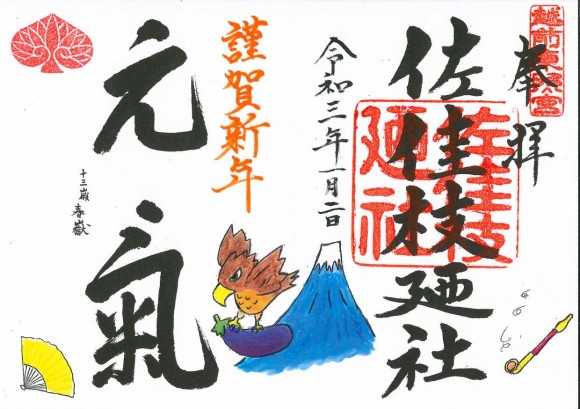 越前東照宮
奉拝
佐佳枝廼社
佐佳枝廼社
令和三年一月二日
謹賀新年
元氣
十三歳 春嶽